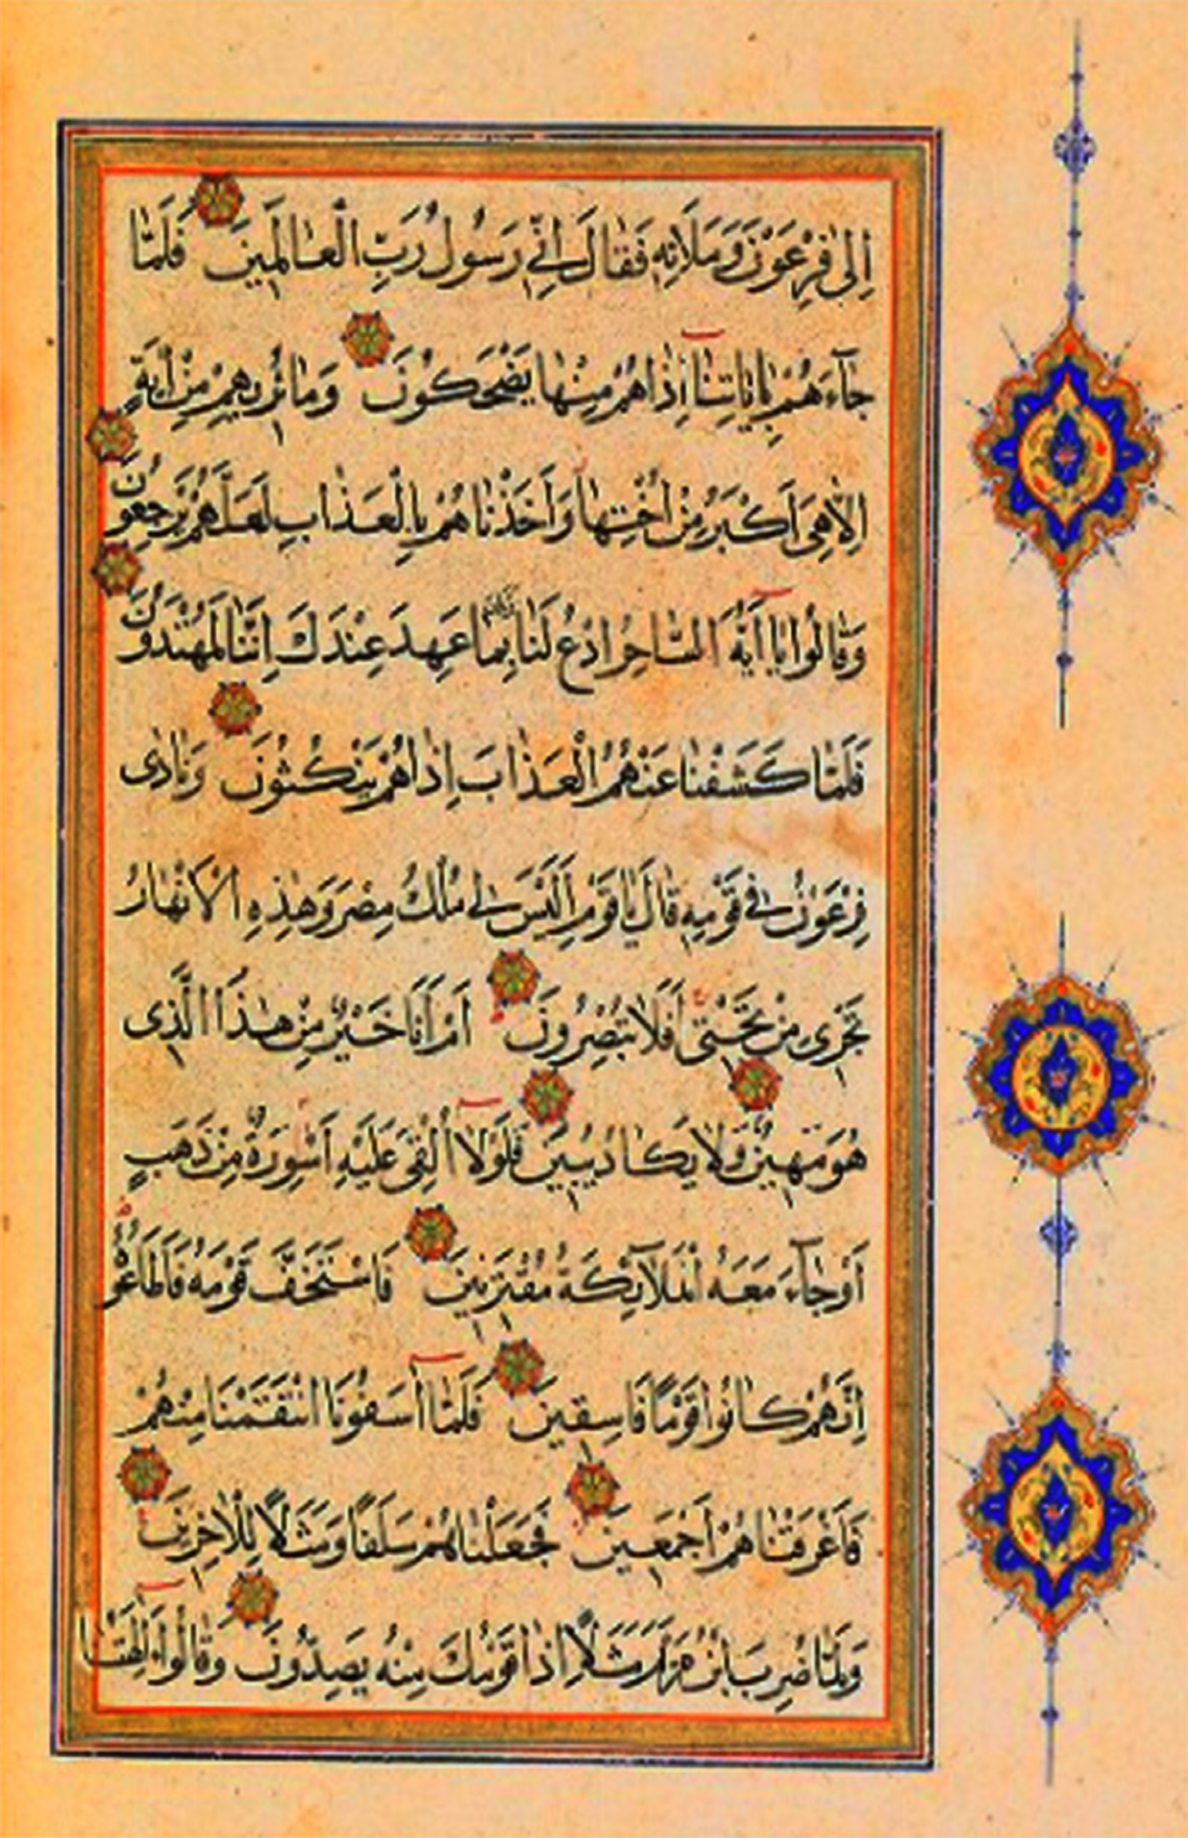 اِلىٰ فِرْعَوْنَ وَمَلَائِهِ فَقَالَ اِنِّي رَسُولُ رَبِّ الْعَالَمِينَ فَلَمَّا
جَآءَهُمْ بِاٰيَاتِنَآ اِذَا هُمْ مِنْهَا يَضْحَكُونَ وَمَا نُرِيهِمْ مِنْ اٰيَةٍ
اِلَّا هِيَ اَكْبَرُ مِنْ اُخْتِهَا وَاَخَذْنَاهُمْ بِالْعَذَابِ لَعَلَّهُمْ يَرْجِعُونَ
وَقَالُوا يَآ اَيُّهَ السَّاحِرُ ادْعُ لَنَا رَبَّكَ بِمَا عَهِدَ عِنْدَكَ اِنَّنَا لَمُهْتَدُونَ
فَلَمَّا كَشَفْنَا عَنْهُمُ الْعَذَابَ اِذَا هُمْ يَنْكُثُونَ وَنَادٰى
فِرْعَوْنُ فِي قَوْمِهِ قَالَ يَا قَوْمِ اَلَيْسَ لِي مُلْكُ مِصْرَ وَهٰذِهِ الْاَنْهَارُ
تَجْرِى مِنْ تَحْتِىٓ اَفَلَا تُبْصِرُونَ اَمْ اَنَا خَيْرٌ مِنْ هٰذَا الَّذِى
هُوَ مَهِينٌ وَلَا يَكَادُ يُبِينُ فَلَوْلَآ اُلْقِىَ عَلَيْهِ اَسْوِرَةٌ مِنْ ذَهَبٍ
اَوْ جَآءَ مَعَهُ الْمَلَآئِكَةُ مُقْتَرِنِينَ فَاسْتَخَفَّ قَوْمَهُ فَاَطَاعُوهُ
اِنَّهُمْ كَانُوا قَوْمًا فَاسِقِينَ فَلَمَّآ اٰسَفُونَا انْتَقَمْنَا مِنْهُمْ
فَاَغْرَقْنَاهُمْ اَجْمَعِينَ فَجَعَلْنَاهُمْ سَلَفًا وَمَثَلًا لِلْاٰخِرِينَ
وَلَمَّا ضُرِبَ ابْنُ مَرْيَمَ مَثَلًا اِذَا قَوْمُكَ مِنْهُ يَصِدُّونَ وَقَالُوٓا ءَاٰلِهَتُنَا